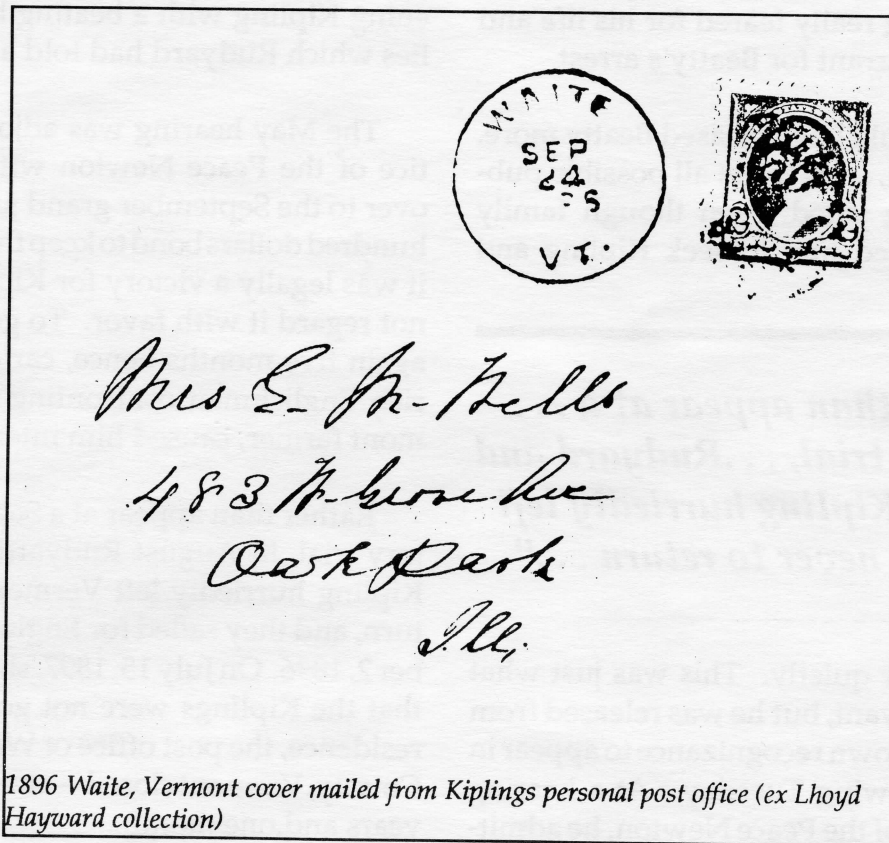 WAITE
SEP
24
VT.
Mrs E. M. Wells
483 N. Grove Ave
Oark Park
Ill.
1896 Waite, Vermont cover mailed from Kiplings personal post office (ex Lhoyd
Hayward collection)